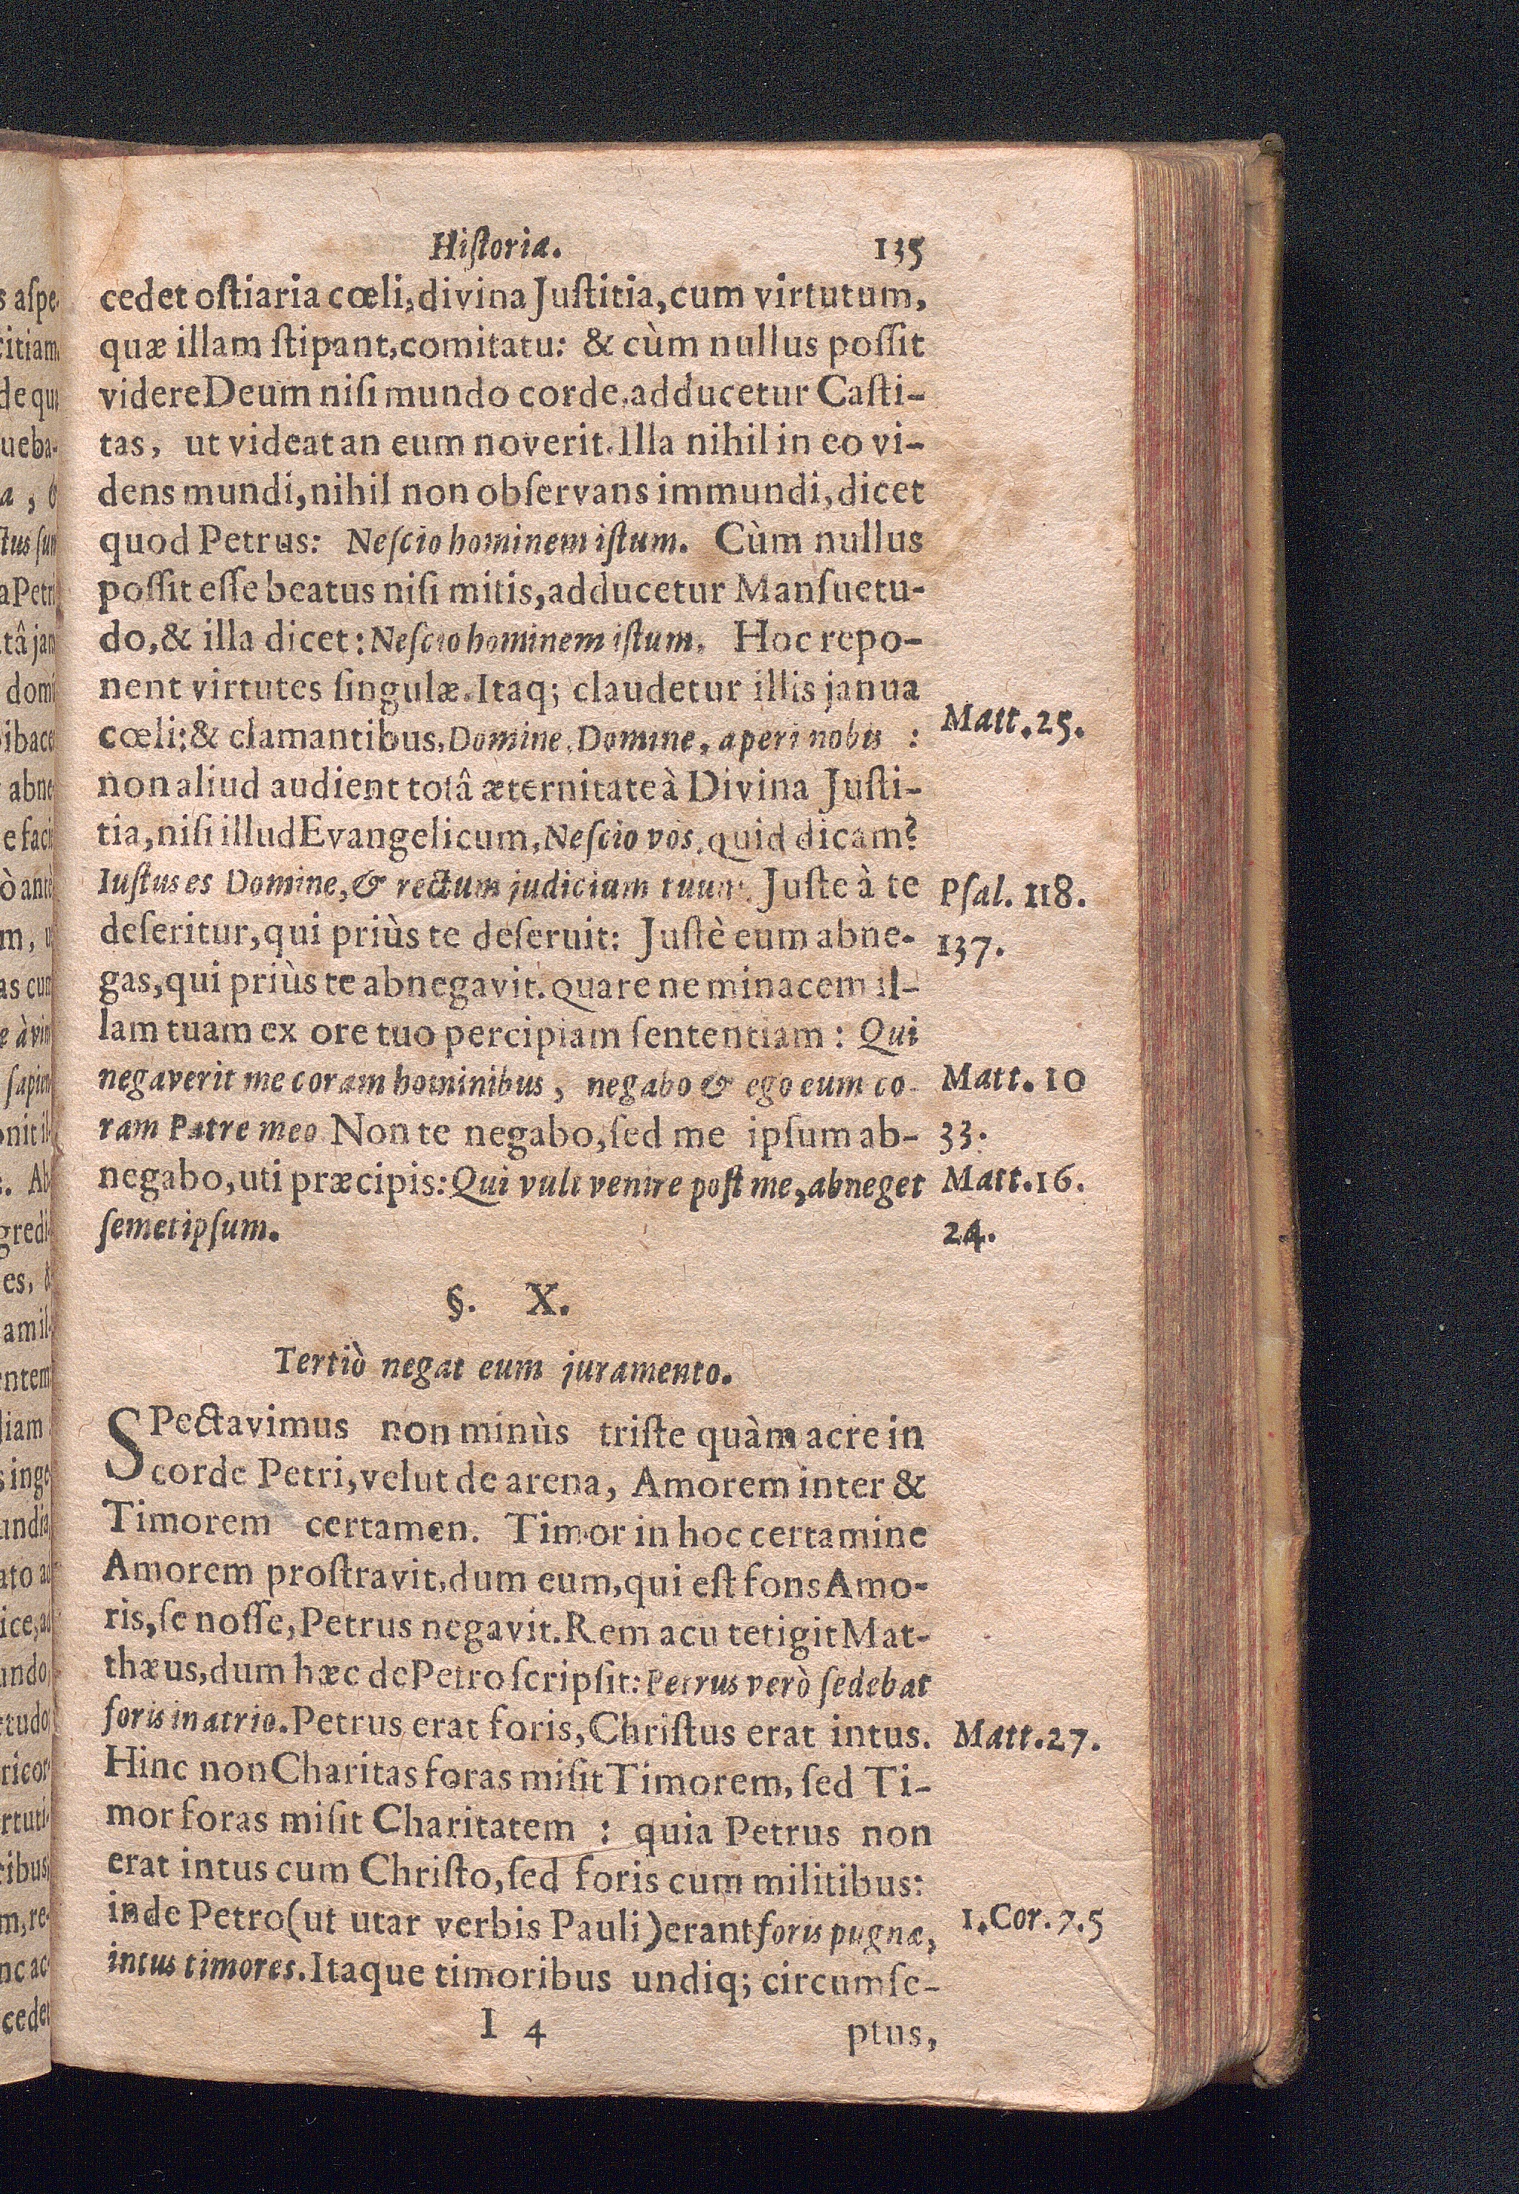 Historiæ. 135
cedet ostiaria cœli, divina Justitia, cum virtutum,
quæ illam stipant, comitatu: & cùm nullus possit
videre Deum nisi mundo corde, adducetur Casti-
tas, ut videat an eum noverit. Illa nihil in eo vi-
dens mundi, nihil non observans immundi, dicet
quod Petrus: Nescio hominem istum. Cùm nullus
possit esse beatus nisi mitis, adducetur Mansuetu-
do, & illa dicet: Nescio hominem istum. Hoc repo-
nent virtutes singulæ. Itaq; claudetur illis janua
cœli: & clamantibus, Domine, Domine, aperi nobis :
Matt. 25.
non aliud audient totâ æternitate à Divina Justi-
tia, nisi illud Evangelicum, Nescio vos. quid dicam?
Iustus es Domine, & rectum judicium tuum. Juste à te
Psal. 118.
deseritur, qui priùs te deseruit: Justè eum abne-
137.
gas, qui priùs te abnegavit. quare ne minacem il-
lam tuam ex ore tuo percipiam sententiam : Qui
negaverit me coram hominibus, negabo & ego eum co-
Matt. 10
ram Patre meo Non te negabo, sed me ipsum ab-
33.
negabo, uti præcipis: Qui vult venire post me, abneget
Matt. 16.
semetipsum.
24.
§. X.
Tertiò negat eum juramento.
SPectavimus non minùs triste quàm acre in
corde Petri, velut de arena, Amorem inter &
Timorem certamen. Timor in hoc certamine
Amorem prostravit, dum eum, qui est fons Amo-
ris, se nosse, Petrus negavit. Rem acu tetigit Mat-
thæus, dum hæc de Petro scripsit: Petrus verò sedebat
foris in atrio. Petrus erat foris, Christus erat intus.
Matt. 27.
Hinc non Charitas foras misit Timorem, sed Ti-
mor foras misit Charitatem : quia Petrus non
erat intus cum Christo, sed foris cum militibus:
inde Petro (ut utar verbis Pauli) erant foris pugnæ,
1. Cor. 7. 5
intus timores. Itaque timoribus undiq; circumse-
I 4 ptus,